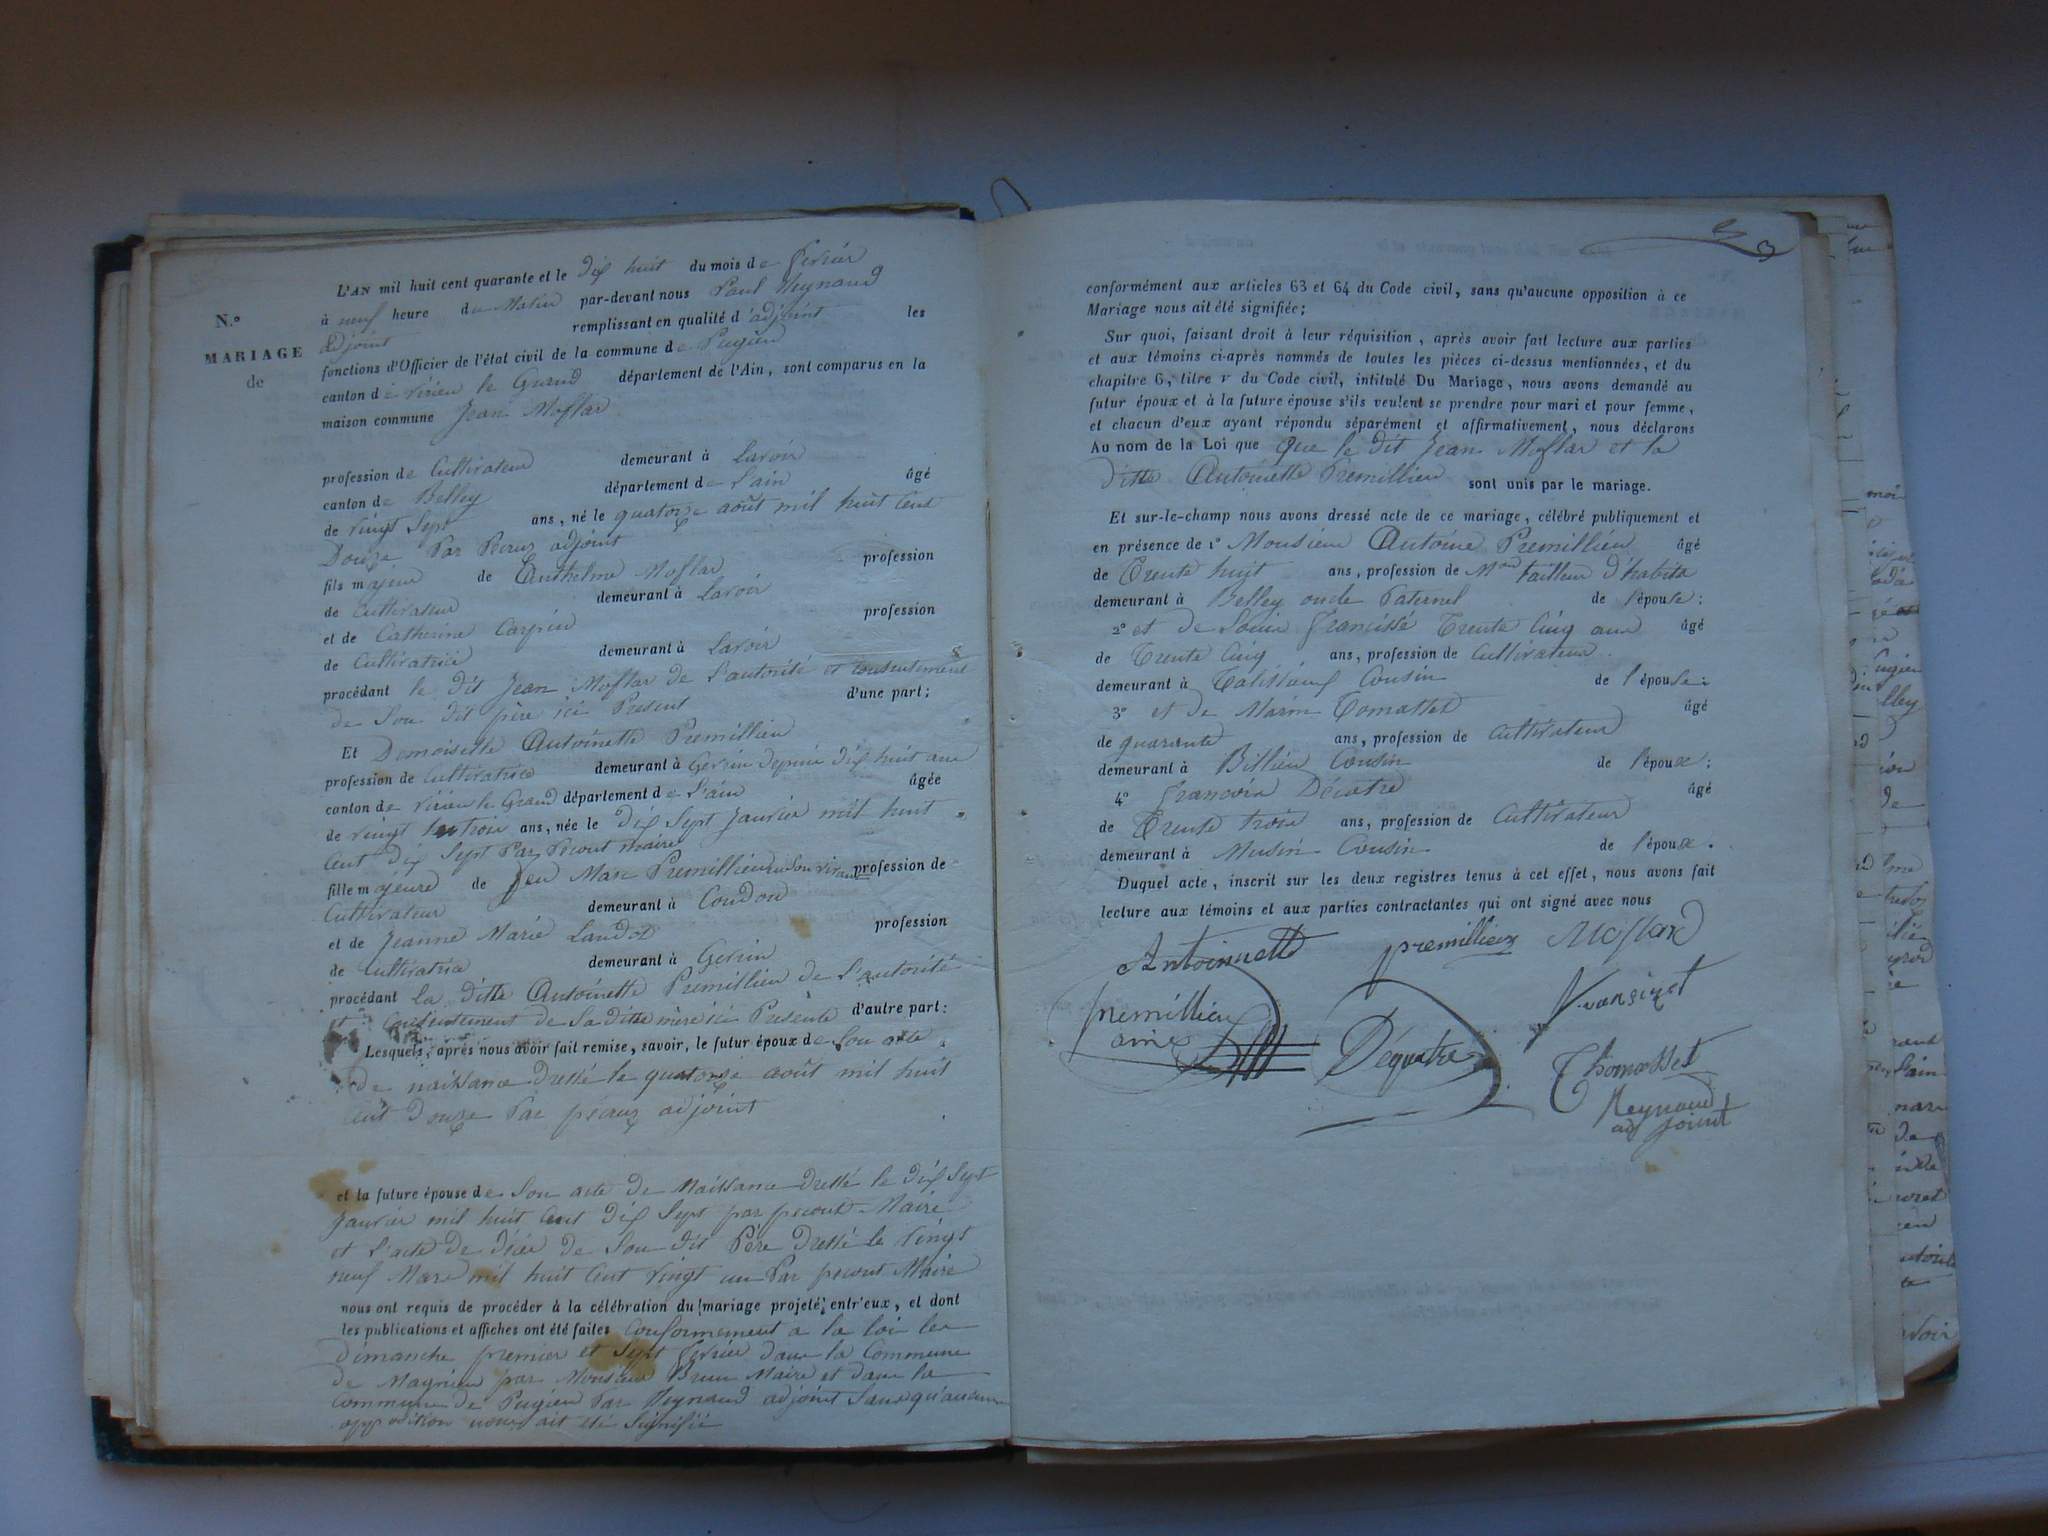 L'AN mil huit cent quarante et le dix huit du mois de fevrier
à neuf heure du Matin par-devant nous Paul Meynaud
adjoint remplissant en qualité d'adjoint les
N.º
MARIAGE
de
fonctions d'Officier de l'état civil de la commune de Pugieu
canton de virieu le Grand département de l'Ain, sont comparus en la
maison commune Jean Moflar
profession de Cultivateur demeurant à Lavoir
canton de Belley département de L'ain âgé
de vingt Sept ans, né le quatorze août mil huit Cent
Douze Par adjoint
fils majeur de Anthelme Moflar profession
de Cultivateur demeurant à Lavoir
et de Catherine Carpin profession
de Cultivatrice demeurant à Lavoir
procédant le dit Jean Moflar de L'autorité et consentement
de Son dit père ici Present d'une part;
Et Demoiselle Antoinette Premillieu
profession de Cultivatrice demeurant à Gevrin depuis dix huit ans
canton de virieu le Grand département de L'ain âgée
de vingt trois ans, née le dix Sept Janvier mil huit
Cent dix Sept Par Pecout maire
fille majeure de feu Marc Premillieu en Son vivant profession de
Cultivateur demeurant à Coudon
et de Jeanne Marie Landot profession
de Cultivatrice demeurant à Gevrin
procédant la ditte Antoinette Premillieu de L'autorité
et Consentement de Sa ditte mère ici Présente d'autre part:
Lesquels, après nous avoir fait remise, savoir, le futur époux de Son acte
de naissance dressé le quatorze août mil huit
Cent douze Par adjoint
et la future épouse de Son acte de Naissance dressé le dix Sept
Janvier mil huit Cent dix Sept par pecout Maire
et L'acte de décè de Son dit Père dressé le vingt
neuf Mars mil huit Cent vingt un Par pecout Maire
nous ont requis de procéder à la célébration du mariage projeté entr'eux, et dont
les publications et affiches ont été faites Conformement a la loi les
Dimanche premier et Sept fevrier dans la Commune
de Magnieu par Monsieur Brun Maire et dans la
Commune de Pugieu Par Meynaud adjoint Sans qu'aucune
opposition nous ait été Signifié
3
conformément aux articles 63 et 64 du Code civil, sans qu'aucune opposition à ce
Mariage nous ait été signifiée;
Sur quoi, faisant droit à leur réquisition, après avoir fait lecture aux parties
et aux témoins ci-après nommés de toutes les pièces ci-dessus mentionnées, et du
chapitre 6, titre v du Code civil, intitulé Du Mariage, nous avons demandé au
futur époux et à la future épouse s'ils veulent se prendre pour mari et pour femme,
et chacun d'eux ayant répondu séparément et affirmativement, nous déclarons
Au nom de la Loi que que le dit Jean Moflar et la
ditte Antoinette Premillieu sont unis par le mariage.
Et sur-le-champ nous avons dressé acte de ce mariage, célébré publiquement et
en présence de 1º Monsieur Antoine Premillieu âgé
de Trente huit ans, profession de Mand tailleur d'habits
demeurant à Belley oncle Paternel de l'épouse;
2º et de Louis Francisse Trente Cinq ans âgé
de Trente Cinq ans, profession de Cultivateur
demeurant à Talissieux Cousin de l'épouse;
3º et de Marin Tomasset âgé
de quarante ans, profession de Cultivateur
demeurant à Billieu Cousin de l'époux;
4º François Décatre âgé
de Trente trois ans, profession de Cultivateur
demeurant à Musin Cousin de l'époux.
Duquel acte, inscrit sur les deux registres tenus à cet effet, nous avons fait
lecture aux témoins et aux parties contractantes qui ont signé avec nous
Antoinette premillieu Moflar
premillieu
ainé
Dequatre
Thomasset
Meynaud
adjoint